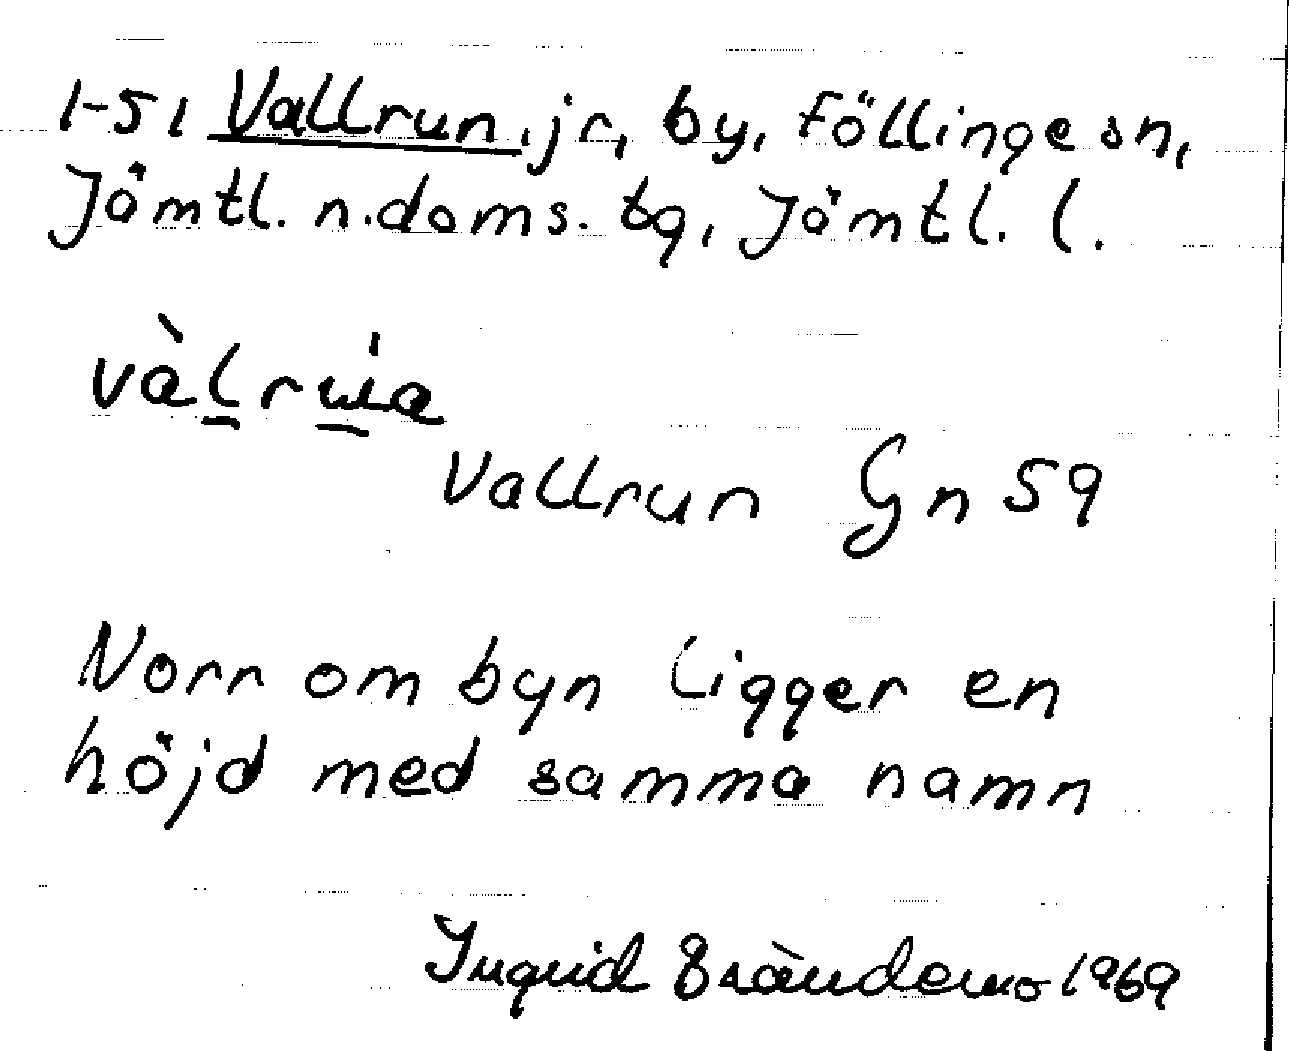 1-51 Vallrun, jr, by, Föllinge sn,
Jämtl. n. doms. tg, Jämtl. l.
Vallrun Gn 59
Norr om byn ligger en
höjd med samma namn
Ingrid Brändemo 1969